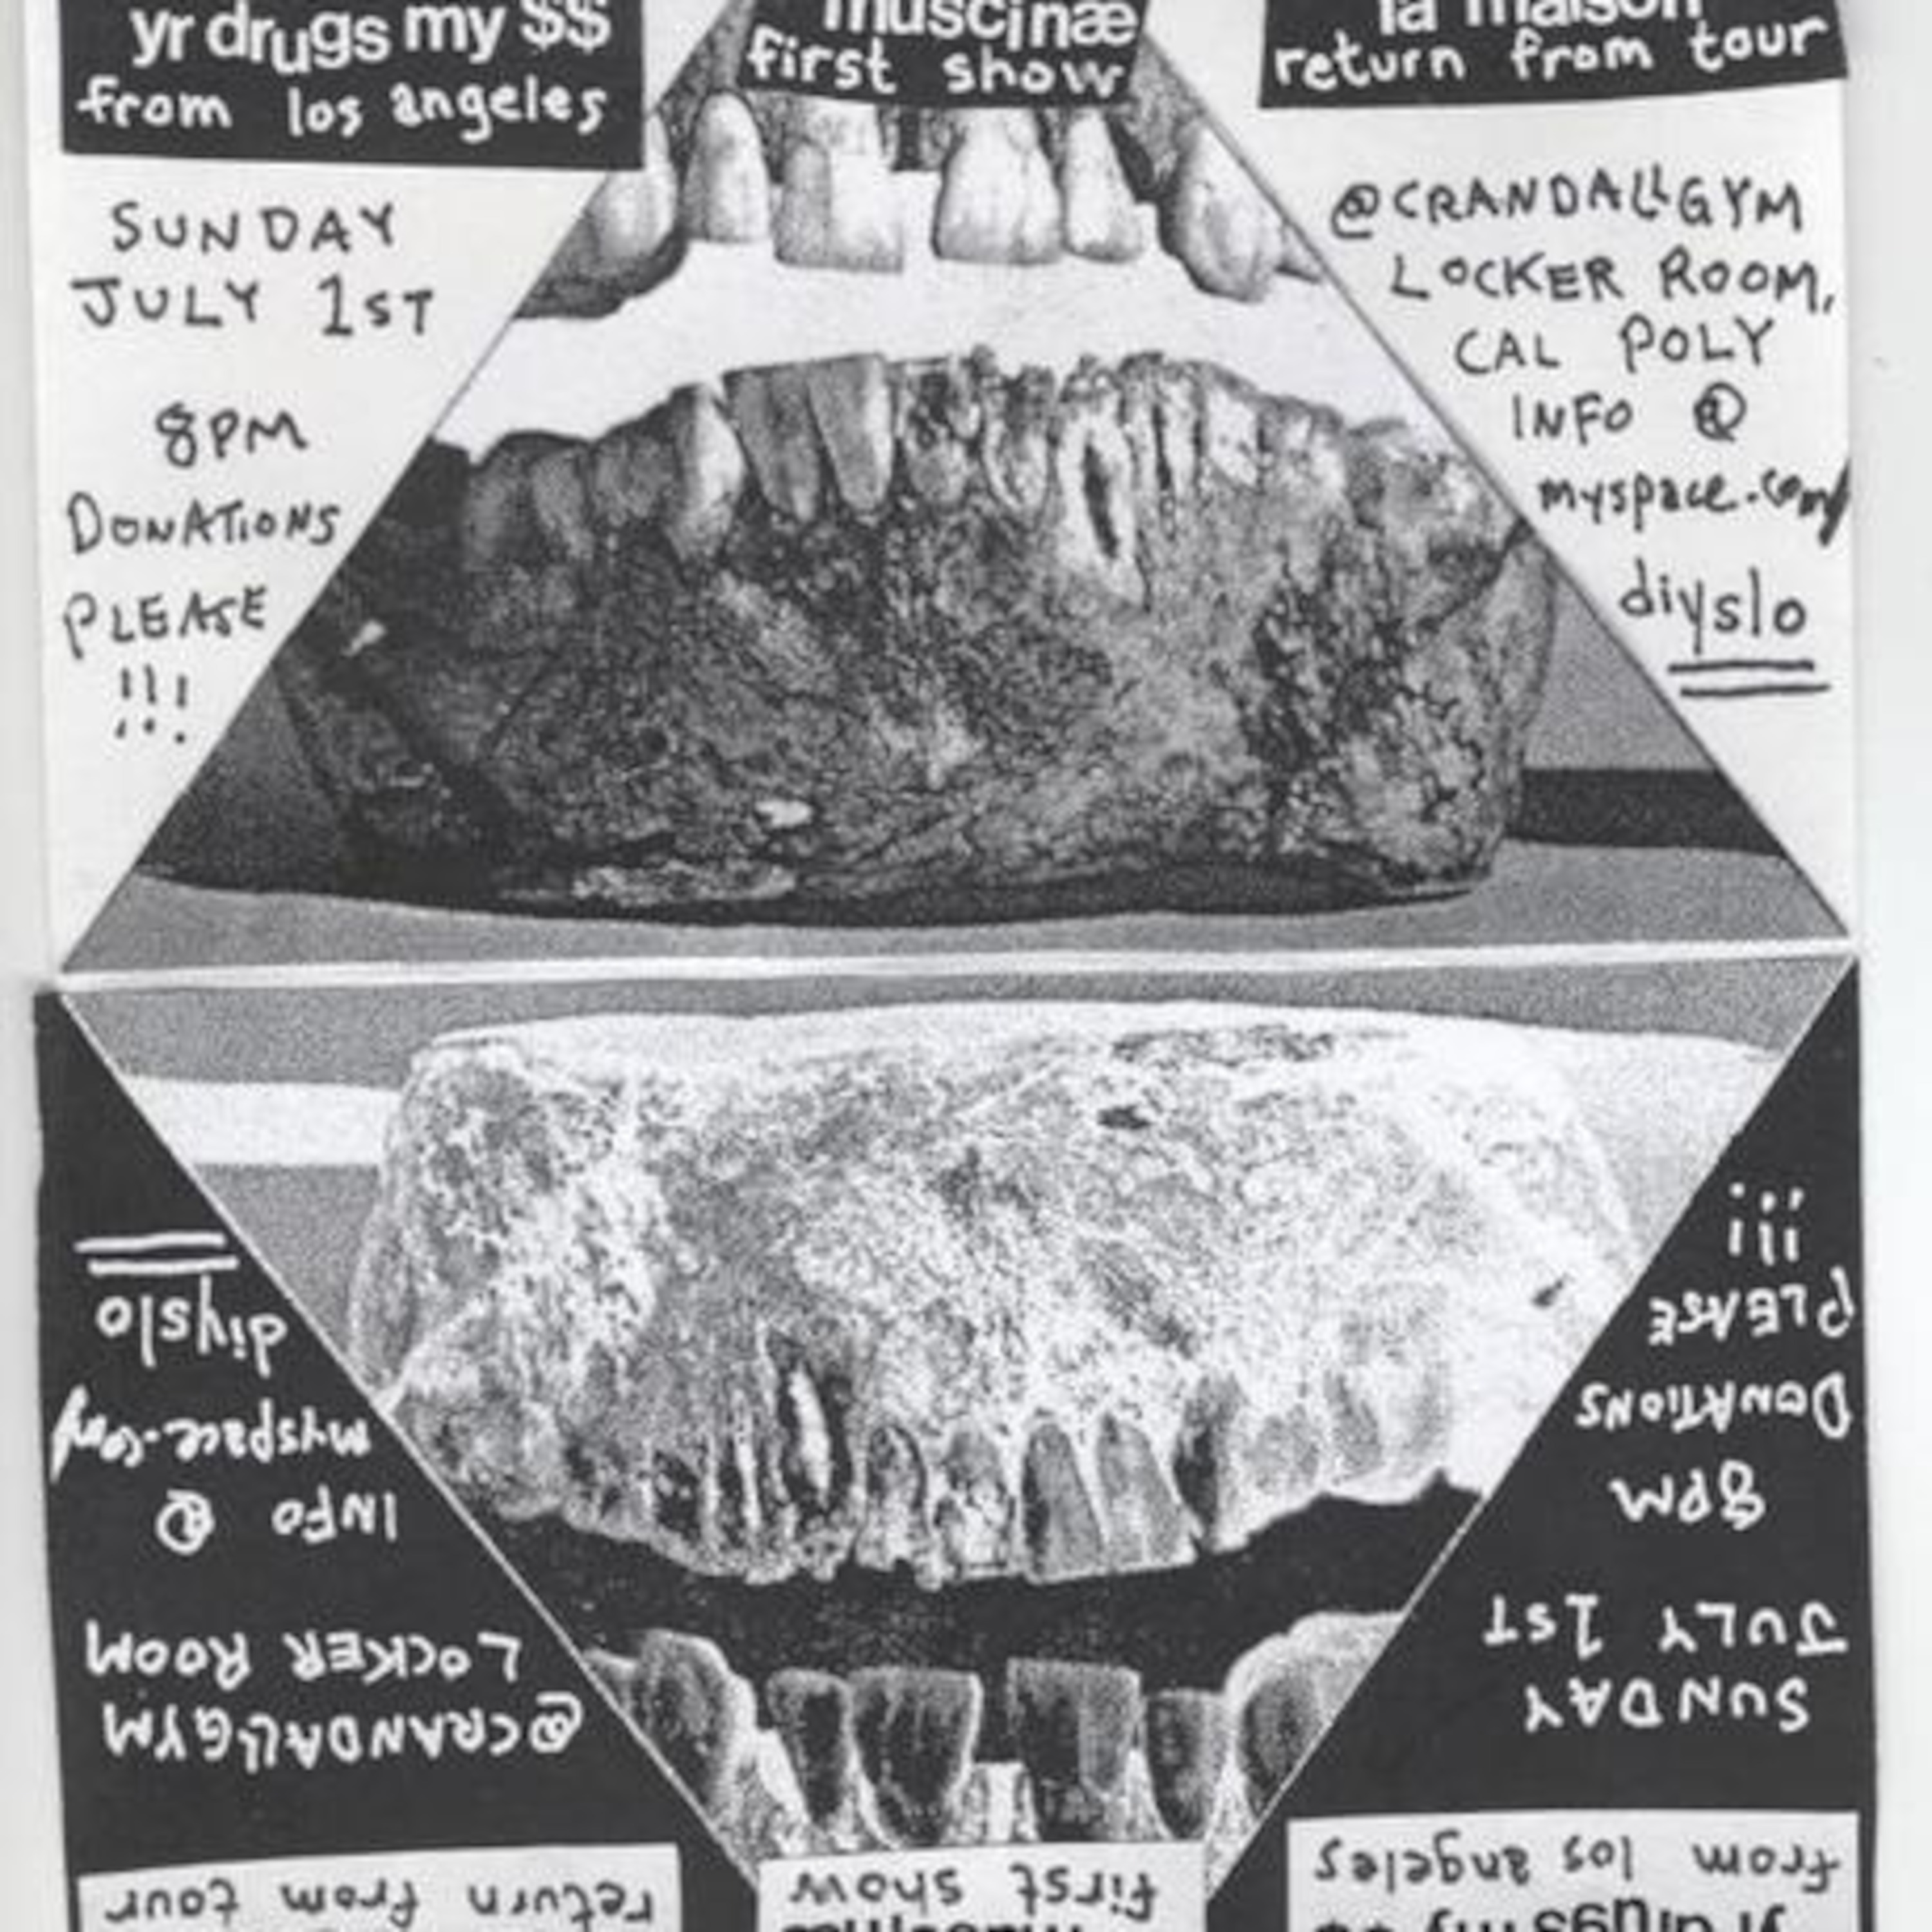 yr drugs my $$
from los angeles
muscinæ
first show
la maison
return from tour
SUNDAY
JULY 1ST
8PM
DONATIONS
PLEASE
!!!
@CRANDALLGYM
LOCKER ROOM,
CAL POLY
INFO @
myspace.com/
diyslo
diyslo
myspace.com/
INFO @
LOCKER ROOM
@CRANDALLGYM
return from tour
!!!
PLEASE
DONATIONS
8PM
JULY 1ST
SUNDAY
first show
muscinæ
from los angeles
yr drugs my $$